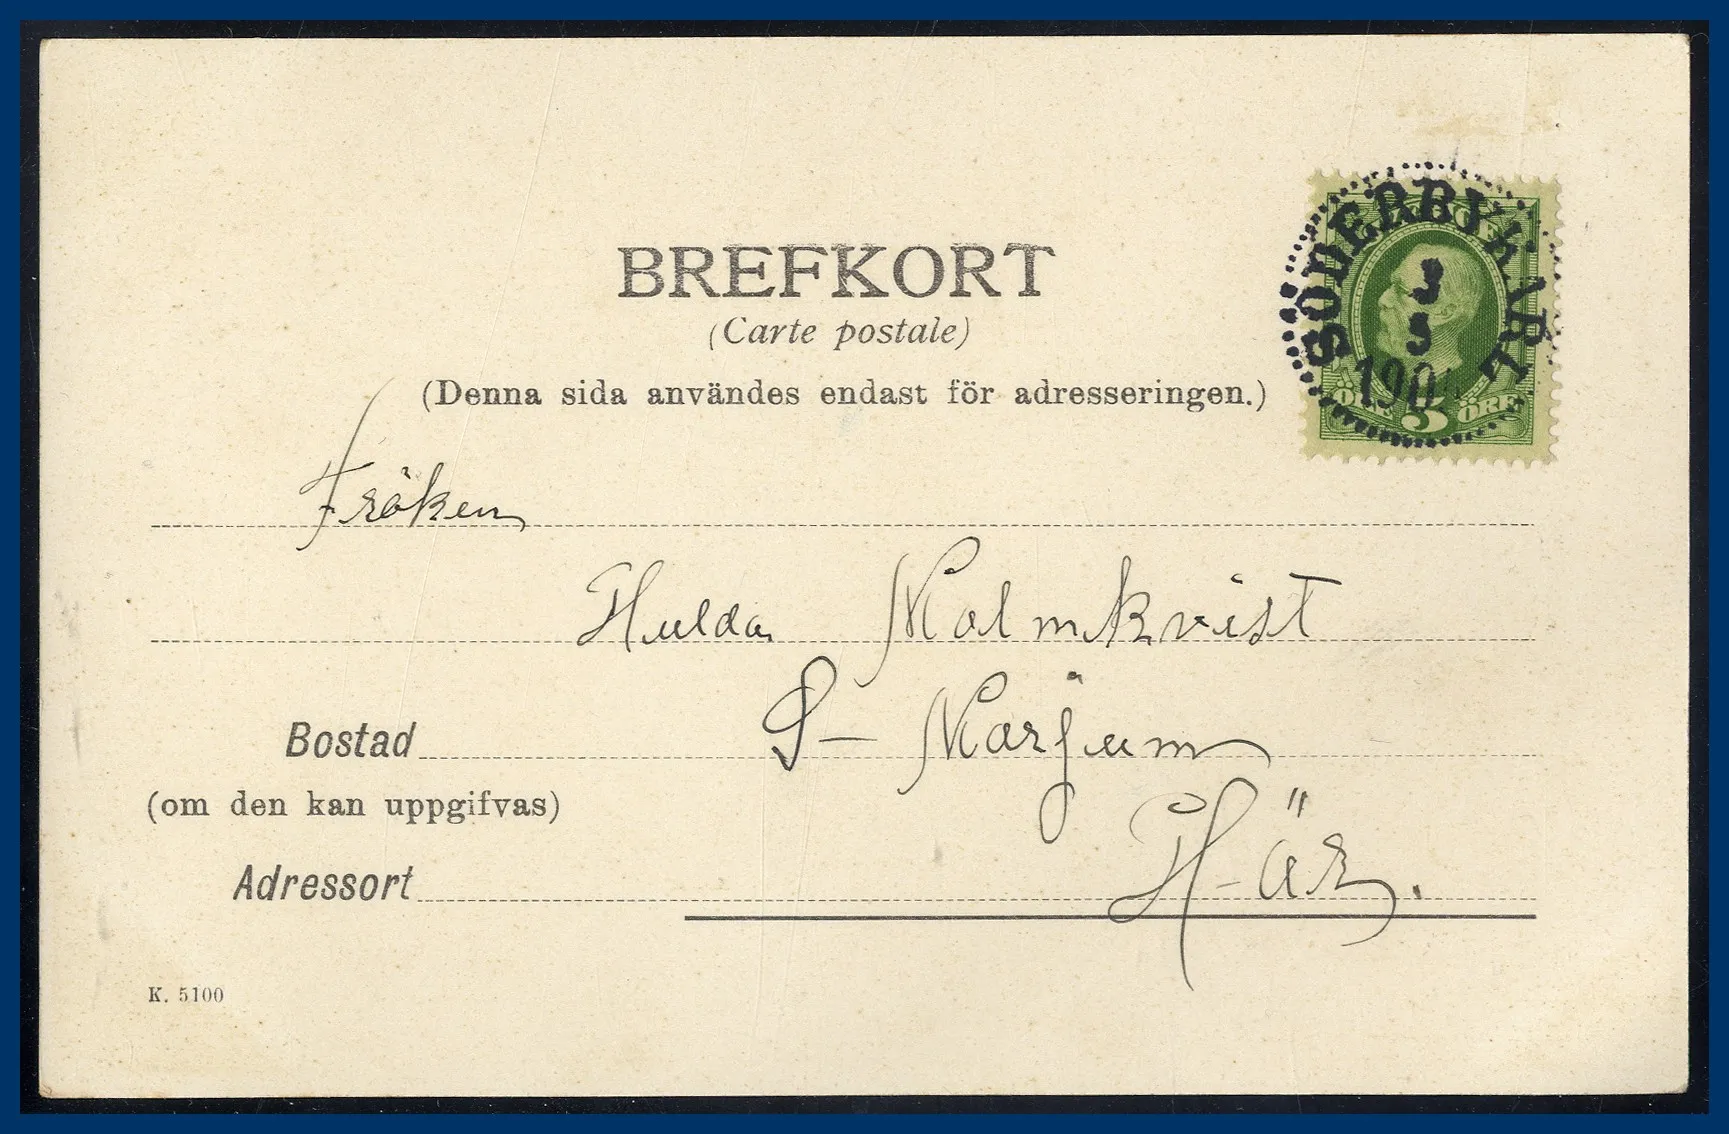 BREFKORT
(Carte postale)
(Denna sida användes endast för adresseringen.)
SÖDERBYKARL
3
5
ÖRE 5 ÖRE
Fröken
Hulda Malmkvist
Bostad
(om den kan uppgifvas)
Adressort
Här.
K. 5100